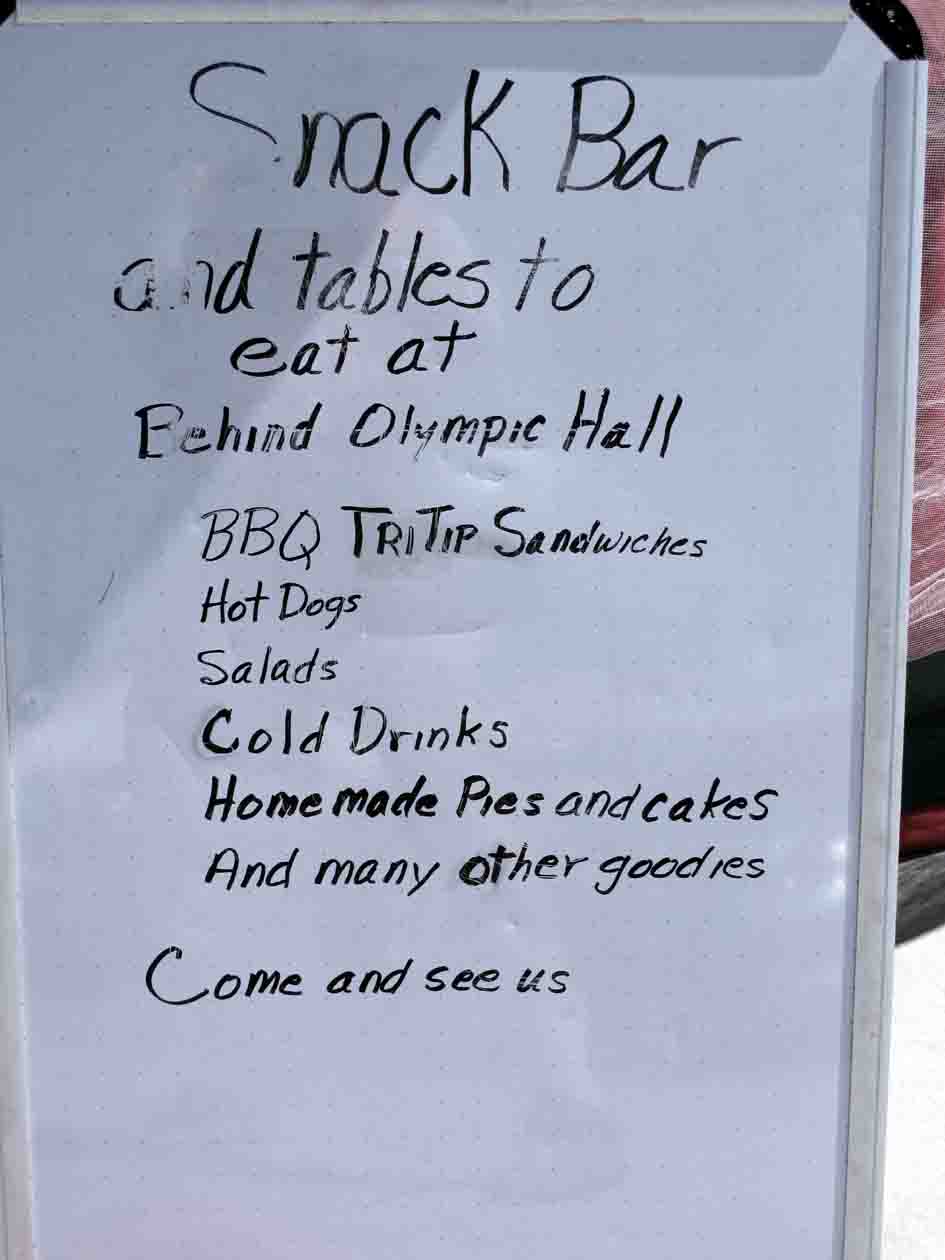 Snack Bar
and tables to
eat at
Behind Olympic Hall
BBQ TRITIP Sandwiches
Hot Dogs
Salads
Cold Drinks
Homemade Pies and cakes
And many other goodies
Come and see us